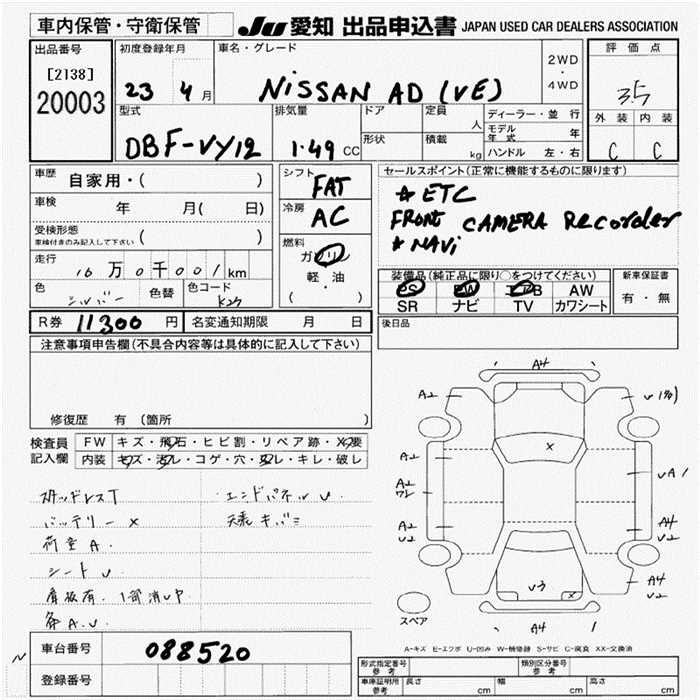 車内保管・守衛保管
JU 愛知 出品申込書 JAPAN USED CAR DEALERS ASSOCIATION
出品番号
[2138]
20003
初度登録年月
23 4 月
車名・グレード
NISSAN AD (VE)
2WD
・
4WD
評価点
3.5
外装 内装
C C
型式
DBF-VY12
排気量
1.49 CC
ドア
形状
定員
人
積載
kg
ディーラー・並行
モデル年式 年
ハンドル 左・右
車歴 自家用・( )
車検 年 月( 日)
受検形態 ( )
車検付きのみ記入して下さい
走行 16万0千001km
色 シルバー 色替 色コード K23
シフト FAT
冷房 AC
燃料
ガソリン
軽・油
( )
セールスポイント(正常に機能するものに限ります)
☆ ETC
FRONT CAMERA Recorder
* NAVi
装備品(純正品に限り○をつけてください)
PS PW エアB AW
SR ナビ TV カワシート
新車保証書
有・無
R券 11300 円 名変通知期限 月 日
後日品
注意事項申告欄(不具合内容等は具体的に記入して下さい)
修復歴 有(箇所 )
検査員
記入欄
FW キズ・飛石・ヒビ割・リペア跡・X要
内装 キズ・汚レ・コゲ・穴・スレ・キレ・破レ
スタッドレスT エンドパネル U
バッテリー X 天張キバミ
荷室 A.
シート U
A.U
A4
A2
A2
A2
A2
U2
A4
U2
A4
U2
X
U3
A4
スペア
A-キズ E-エクボ U-凹み W-補修跡 S-サビ C-腐食 XX-交換済
車台番号 088520
登録番号
N
形式指定番号 参考
類別区分番号 参考
車庫証明用 参考 長さ cm 幅 cm 高さ cm